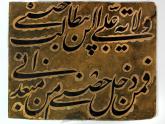 ولایة علی بن ابی طالب حصنی
فمن دخل حصنی امن من عذابی